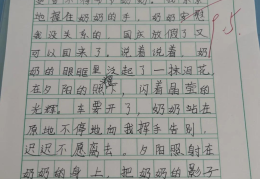 地握住奶奶的手，奶奶安慰
我没关系的，国庆放假了又
可以回来了。说着说着，奶
奶的眼眶里泛起了一抹泪花，
在夕阳的照耀，闪着晶莹的
光辉。车要开了，奶奶站在
原地不停地向我挥手告别，
迟迟不愿离去。夕阳照射在
奶奶的身上，把奶奶的影子
95